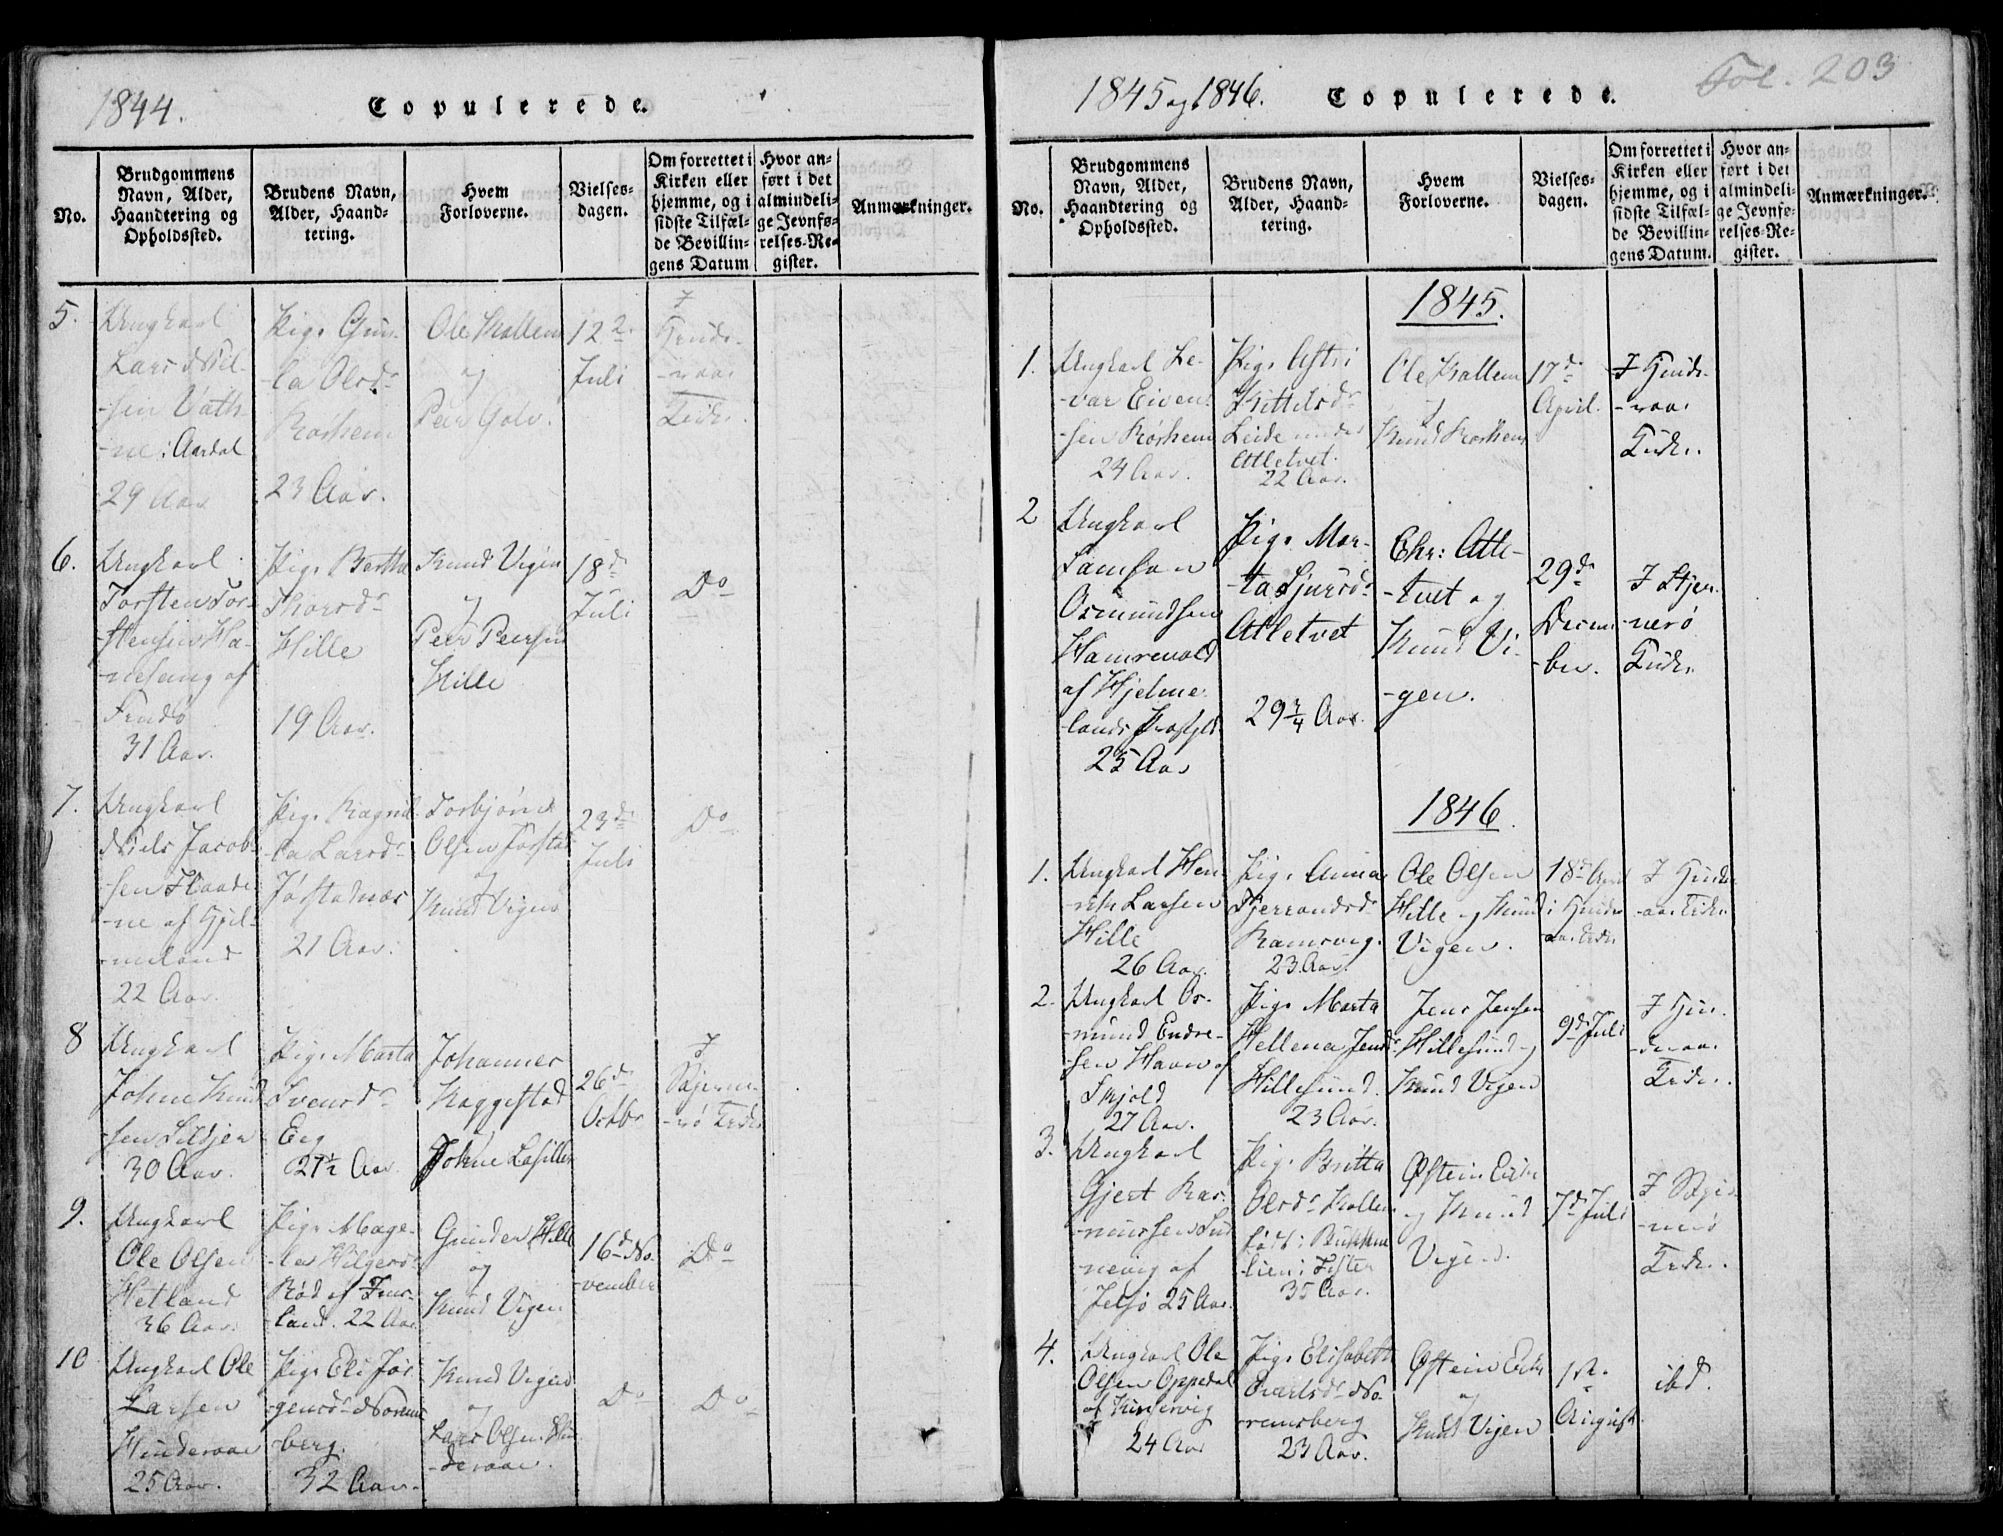 1844.
Copulerede.
No.
Brudgommens
Navn, Alder,
Haandtering og
Opholdssted.
Brudens Navn,
Alder, Haand-
tering.
Hvem
Forloverne.
Vielses-
dagen.
Om forrettet i
Kirken eller
hjemme, og i
sidste Tilfæl-
de Bevillin-
gens Datum
Hvor an-
ført i det
almindeli-
ge Jevnfø-
relses-Re-
gister.
Anmærkninger.
5.
Ungkarl
Lars Niel-
-sen Vath-
-ne i Aardal
29 Aar
Pige Gun-
-la Olsdr
Rørhem
23 Aar.
Ole Kallem
og
Peer
12te
Juli
I
Hinde-
-raae
Kirke
6.
Ungkarl
Torsten Tor-
-stensen Ha-
af
Findø
31 Aar.
Pige Bertha
Thorsdr
Hille
19 Aar.
Knud Vigen
og
Peer Peersen
Hille
18de
Juli
Do
7.
Ungkarl
Niels Jacob-
-sen
-ne af Hjel-
-meland
22 Aar.
Pige Ragnil-
-la Larsdr
Jøstadnæs
21 Aar.
Torbjørn
Olsen Jøstad
og
Knud Vigen
23de
Juli
Do
8
Ungkarl
Johne Knud-
-sen
30 Aar.
Pige Marta
Svensdr
Eeg
27½ Aar
Johannes
Kaggestad
Johne
26de
Octbr
I
Skjerne-
-rø Kirke
9.
Ungkarl
Ole Olsen
Hetland
36 Aar.
Pige Mage-
-la
Rød af
22 Aar
Gunder Hille
og
Knud Vigen
16de No-
-vember
Do
10
Ungkarl Ole
Larsen
Hinderaae
25 Aar.
Pige Eli Jør-
-gensdr Norum-
-berg.
32 Aar.
Knud Vigen
og
Lars Olsen Hin-
-deraae.
Do
Do
1845 og 1846.
Copulerede.
Fol. 203
No.
Brudgommens
Navn, Alder,
Haandtering og
Opholdssted.
Brudens Navn,
Alder, Haand-
tering.
Hvem
Forloverne.
Vielses-
dagen.
Om forrettet i
Kirken eller
hjemme, og i
sidste Tilfæl-
de Bevillin-
gens Datum.
Hvor an-
ført i det
almindeli-
ge Jevnfø-
relses-Re-
gister.
Anmærkninger.
1845.
1.
Ungkarl Le-
-var Eiven-
-sen Rørhem
24 Aar.
Pige Astri
Kittelsdr
Leide under
Atletvet.
22 Aar.
Ole Kallem
og
Knud Rørhem
17de
April.
I Hinde-
-raae
Kirke.
2
Ungkarl
Samson
Osmundsen
Hamrevold
af Hjelme-
-lands Præstgld.
25 Aar
Pige Mar-
-ta Sjursdr
Atletvet
29¾ Aar.
Chr: Atle-
-tvet og
Knud Vi-
-gen.
29de
Decem-
-ber.
I Skjer-
-nerø
Kirke
1846.
1.
Ungkarl Hen-
-rik Larsen
Hille
26 Aar.
Pige Anna
Tjerrandsdr
Ramsvig.
23 Aar.
Ole Olsen
Hille og Knud
Vigen.
18de April
i Hinder-
-aae Kirke
I Hinder-
-aae Kirke
2.
Ungkarl Os-
-mund Endre-
-sen Havn af
Skjold
27 Aar.
Pige Marta
Hellena Jensdr
Hillesund.
23 Aar.
Jens Jensen
Hillesund og
Knud Vigen
9de Juli
I Hin-
-deraae
Kirke.
3.
Ungkarl
Gjert Ras-
-mussen Sun-
-nevig af
Jelsø 25 Aar.
Pige Britta
Olsdr Kallem
født i
-lien i Fister
35 Aar.
Østein Eike
og Knud
Vigen.
7de Juli
I Skjer-
-nerø
Kirke.
4.
Ungkarl Ole
Olsen Oppedal
af Kinservig
24 Aar
Pige Elisabeth
No-
-remsberg
23 Aar.
Østein Eike
og
Knud Vigen
1ste
August.
ibd.